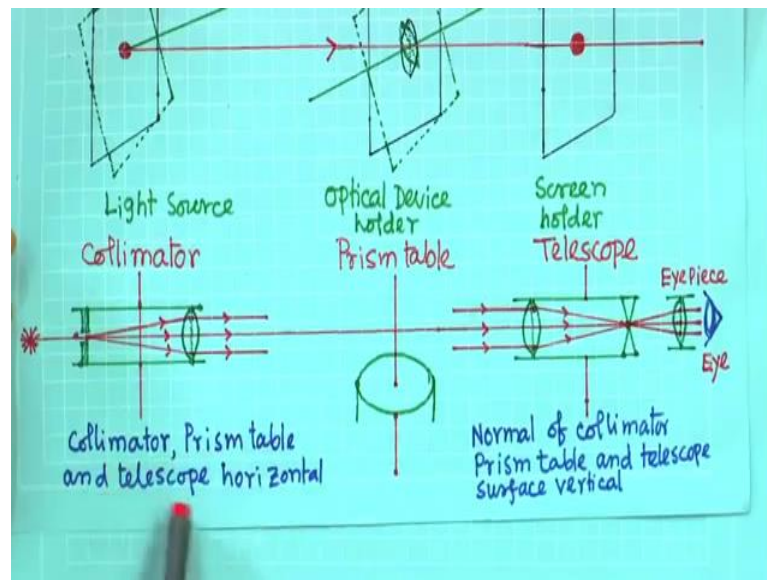 Light Source
Optical Device
holder
Screen
holder
Collimator
Prism table
Telescope
EyePiece
Eye
Collimator, Prism table
and telescope horizontal
Normal of collimator
Prism table and telescope
surface vertical